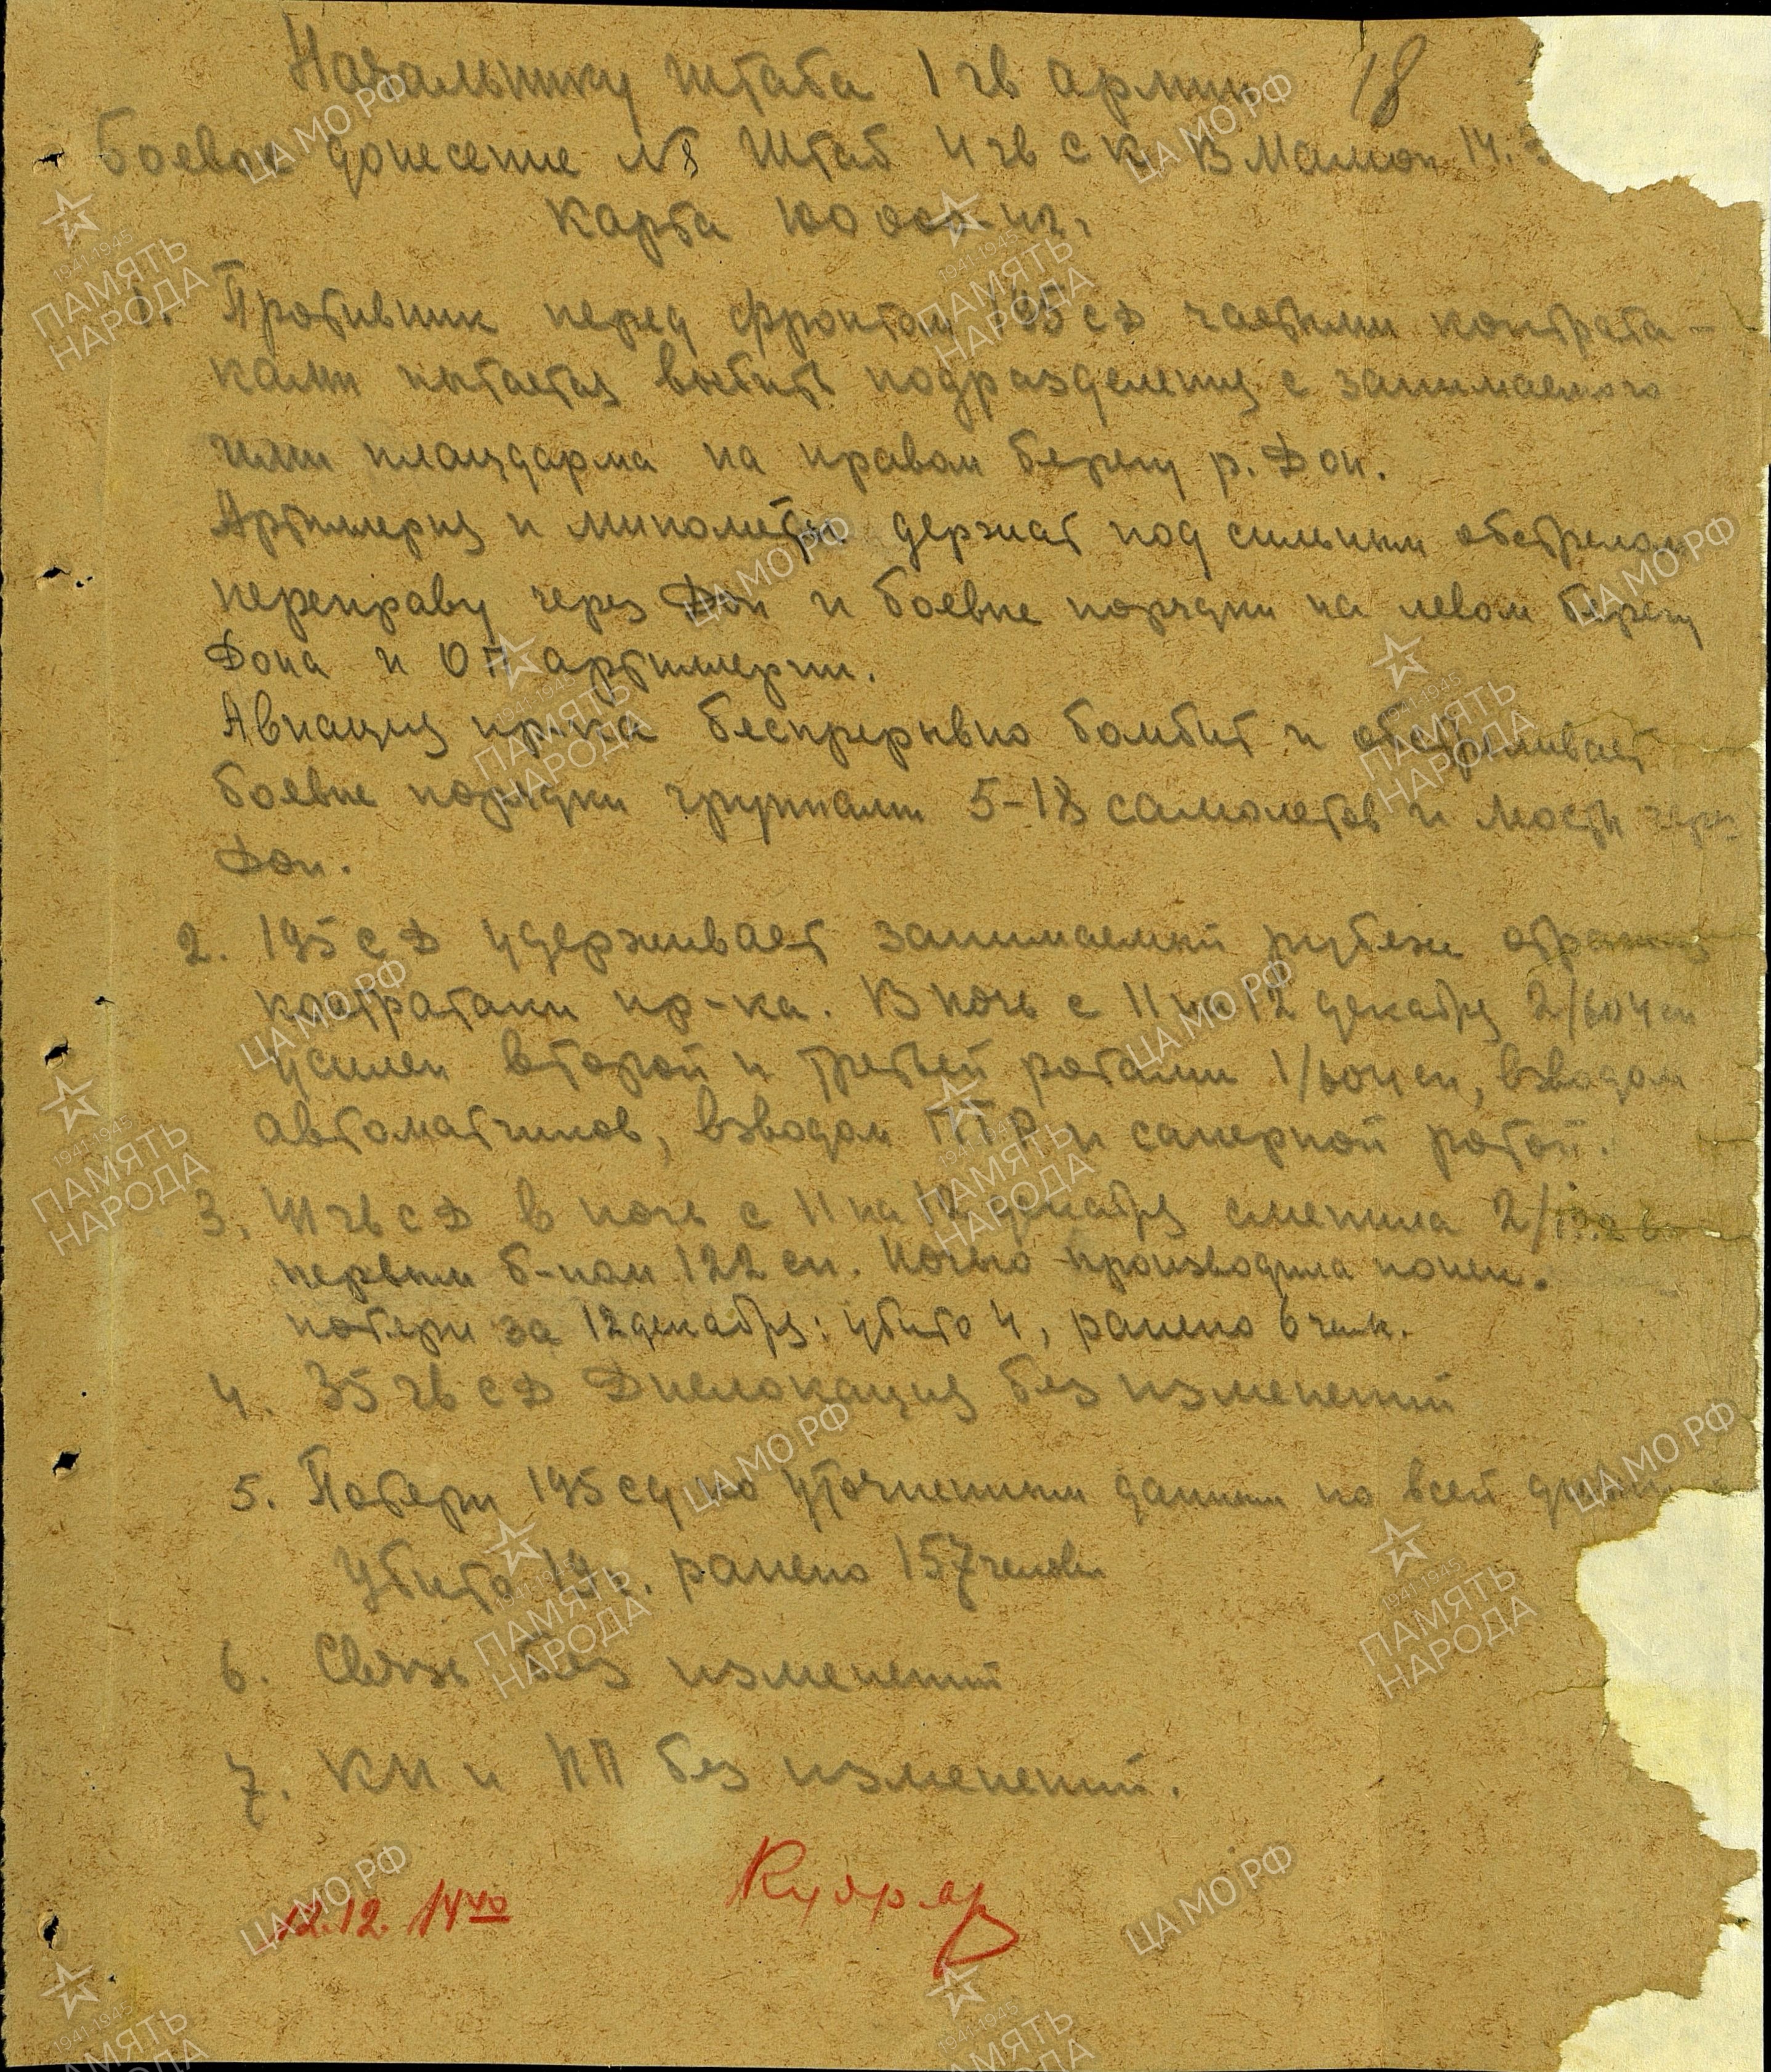 Начальнику штаба 1 гв армии 18
Боевое донесение №8 Штаб 4 гв СК В Мамон 14.
Карта 100 000-42г.
1. Противник перед фронтом 195 сД частыми контрата-
ками пытается выбить подразделения с занимаемого
ими плацдарма на правом берегу р. Дон.
Артиллерия и минометы держат под сильным обстрелом
переправу через Дон и боевые порядки на левом берегу
Дона и ОП артиллерии.
Авиация пр-ка беспрерывно бомбит и обстреливает
боевые порядки группами 5-18 самолетов и мосты через
Дон.
2. 195 сД удерживает занимаемый рубеж отражая
контратаки пр-ка. В ночь с 11 на 12 декабря 2/604 сп
усилен второй и третьей ротами 1/604 сп, взводом
автоматчиков, взводом ПТР и саперной ротой.
3. 41 гв сД в ночь с 11 на 12 декабря сменила 2/
первым б-ном 122 сп. Ночью производила
потери за 12 декабря: убито 4, ранено 6 чел.
4. 35 гв сД Дислокация без изменений
5. Потери 195 сд по уточненным данным по всей
Убито 19 ч. ранено 157 человек
6. Связь без изменений
7. КП и НП без изменений.
12.12. 14 40
ЦА МО РФ
1941-1945
ПАМЯТЬ
НАРОДА